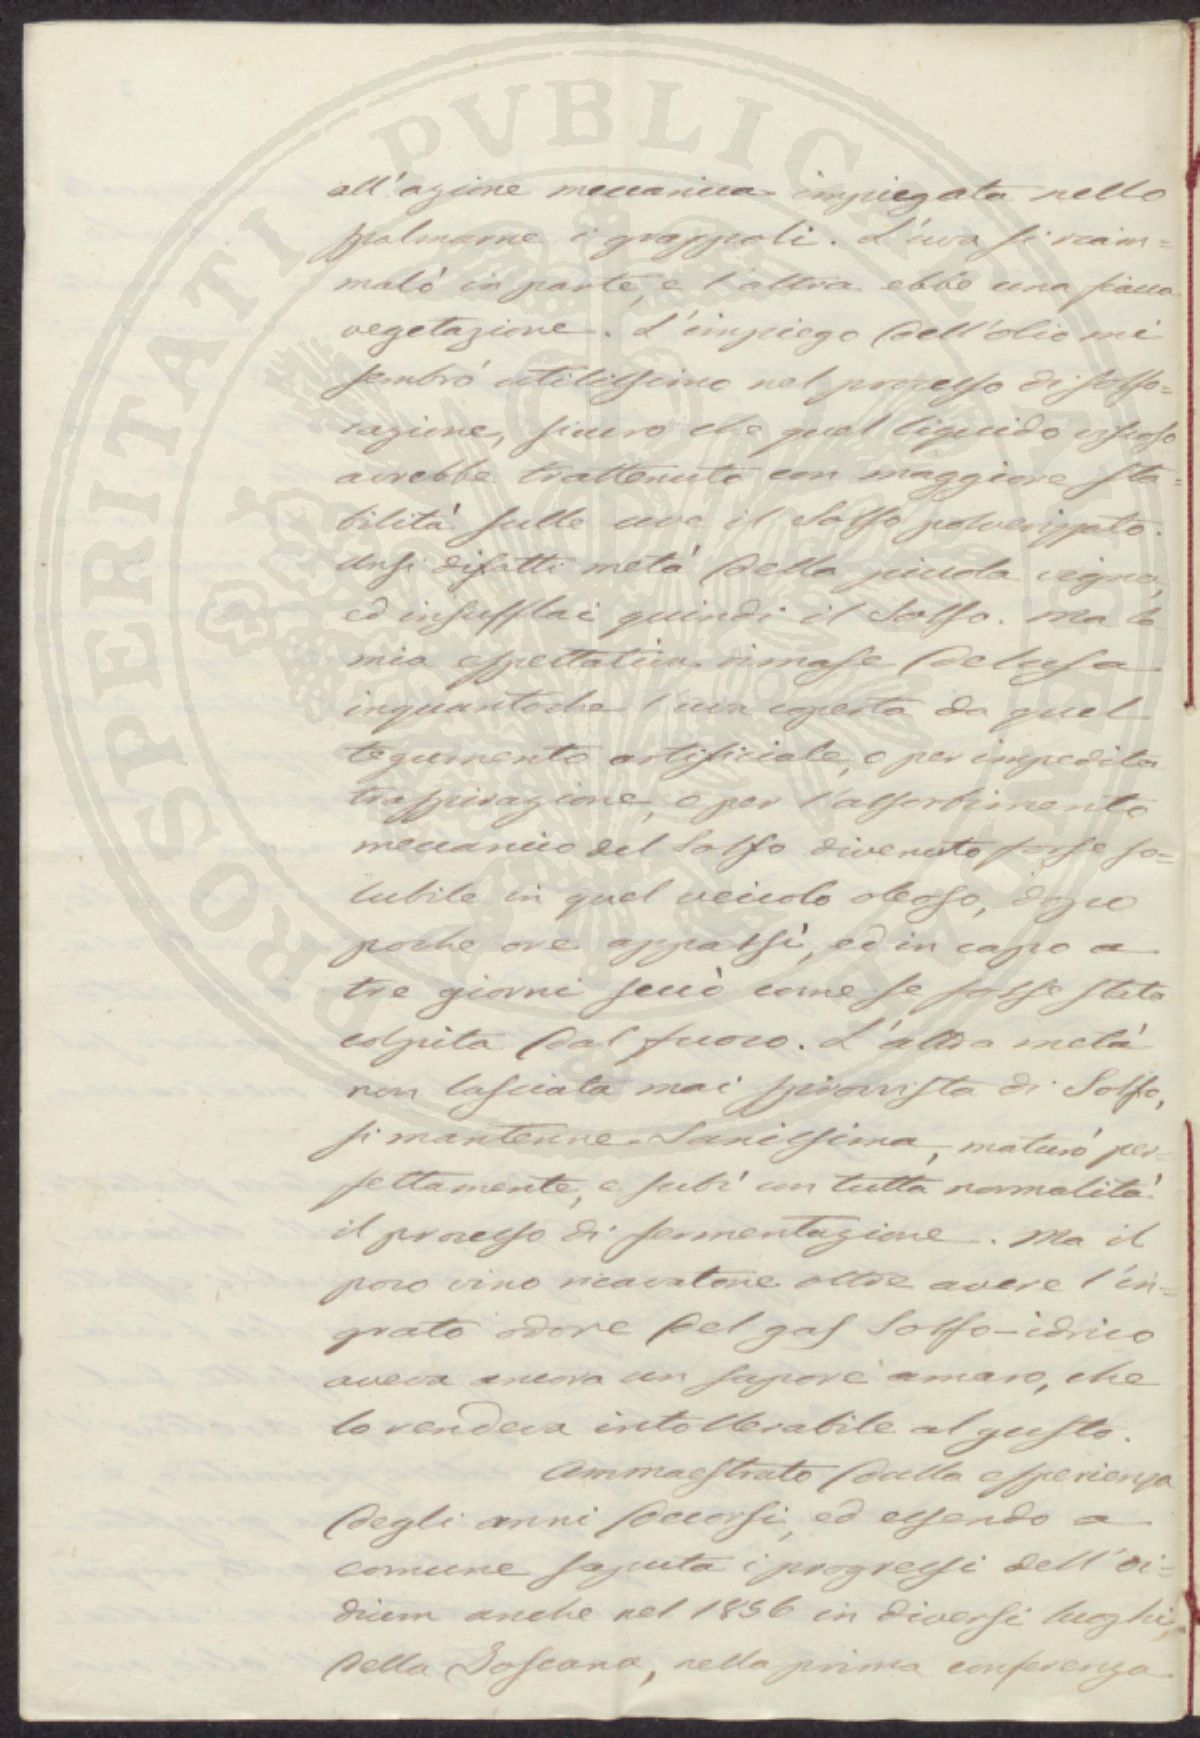 all'azione meccanica impiegata nello
spalmarne i grappoli. L'uva si riam=
malò in parte, e l'altra ebbe una fiacca
vegetazione. L'impiego dell'olio mi
sembrò utilissimo nel processo di solfo=
razione, sicuro che quel liquido vischioso
avrebbe trattenuto con maggiore sta=
bilità sulle uve il Solfo polverizzato.
Unsi difatti metà della piccola vigna,
ed insufflai quindi il Solfo. Ma la
mia espettativa rimase delusa
inquantoche l'uva coperta da quel
tegumento artificiale, o per impedita
traspirazione, o per l'assorbimento
meccanico del Solfo divenuto forse so=
lubile in quel veicolo oleoso, dopo
poche ore appassì, ed in capo a
tre giorni seccò come se fosse stata
colpita dal fuoco. L'altra metà
non lasciata mai sprovvista di Solfo,
si mantenne Sanissima, maturò per=
fettamente, e subì con tutta normalità
il processo di fermentazione. Ma il
poco vino ricavatone oltre avere l'in=
grato odore del gas Solfo-idrico
aveva ancora un sapore amaro, che
lo rendeva intollerabile al gusto.
Ammaestrato dalla esperienza
degli anni decorsi, ed essendo a
comune saputa i progressi dell'oi=
dium anche nel 1856 in diversi luoghi
della Toscana, nella prima conferenza
PROSPERITATI PVBLICAE